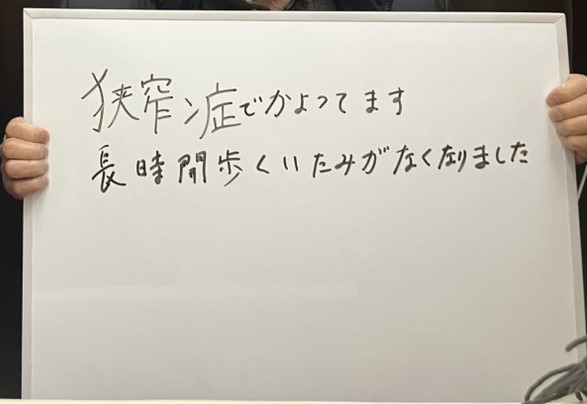 狭窄症でかよってます
長時間歩くいたみがなくなりました